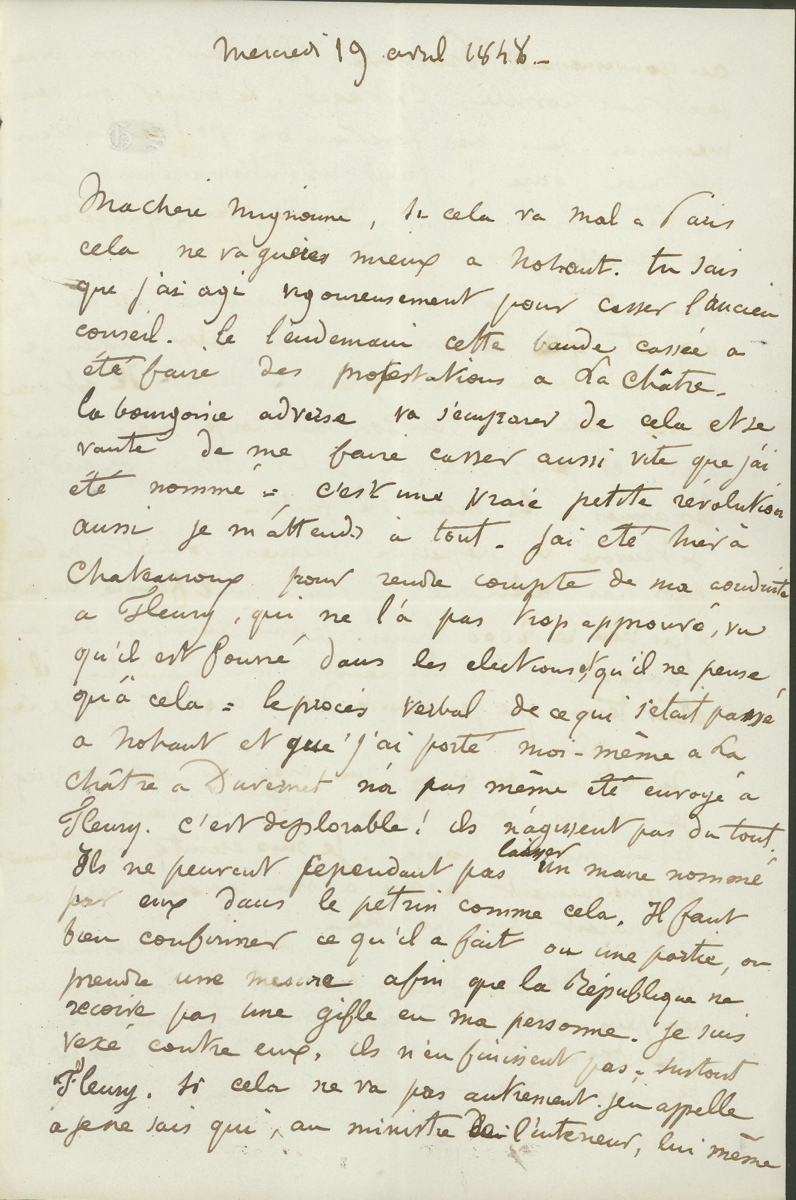 Mercredi 19 avril 1848. -
Ma chere mignonne, si cela va mal a Paris
cela ne va guères mieux a Nohant. tu sais
que j'ai agi vigoureusement pour casser l'ancien
conseil. le lendemain cette bande cassée a
été faire des protestations a La Châtre.
la bourgoisie adverse va s'emparer de cela et se
vante de me faire casser aussi vite que j'ai
été nommé = c'est une vraie petite révolution
aussi je m'attends à tout. J'ai eté hier à
Chateauroux pour rendre compte de ma conduite
a Fleury, qui ne l'a pas trop approuvé, vu
qu'il est fourré dans les elections et qu'il ne pense
qu'à cela = le procès verbal de ce qui s'etait passé
a Nohant et que j'ai porté moi-même a La
Châtre a Duvernet n'a pas même été envoyé à
Fleury. c'est deplorable! ils n'agissent pas du tout.
Ils ne peuvent cependant pas laisser un maire nommé
par eux dans le pétrin comme cela. Il faut
bien confirmer ce qu'il a fait ou une partie, ou
prendre une mesure afin que la République ne
recoive pas une gifle en ma personne. Je suis
vexé contre eux, ils n'en finissent pas, surtout
Fleury. Si cela ne va pas autrement j'en appelle
a je ne sais qui, au ministre de l'interieur, lui même